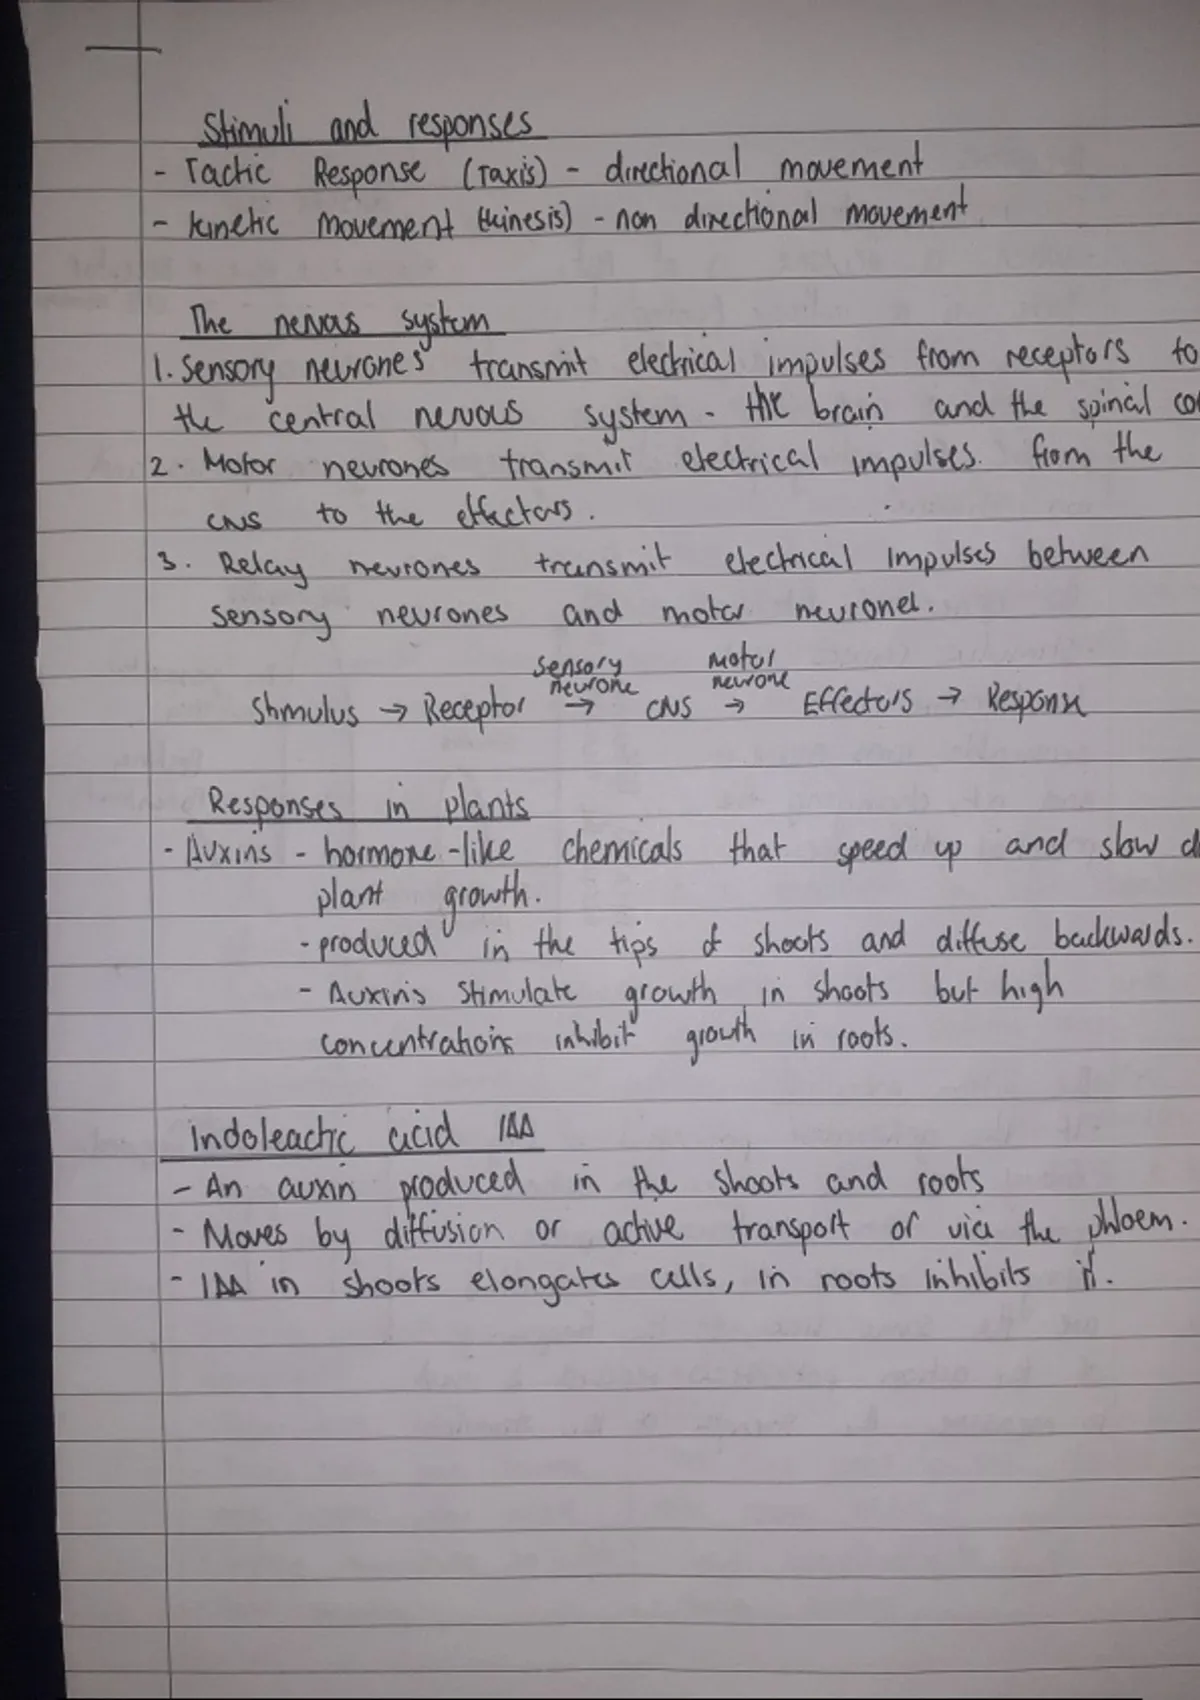 Stimuli and responses
- Tactic Response (Taxis) - directional movement
- kinetic movement (kinesis) - non directional movement
The nervous system
1. Sensory neurones transmit electrical impulses from receptors to
the central nervous system - the brain and the spinal co
2. Motor neurones transmit electrical impulses. from the
CNS to the effectors.
3. Relay neurones transmit electrical impulses between
sensory neurones and motor neurones.
sensory motor
neurone neurone
Stimulus → Receptor → CNS → Effectors → Response
Responses in plants
- Auxins - hormone-like chemicals that speed up and slow d
plant growth.
- produced in the tips of shoots and diffuse backwards.
- Auxins stimulate growth in shoots but high
concentrations inhibit growth in roots.
Indoleactic acid IAA
- An auxin produced in the shoots and roots
- Moves by diffusion or active transport or via the phloem.
- IAA in shoots elongates cells, in roots inhibits it.